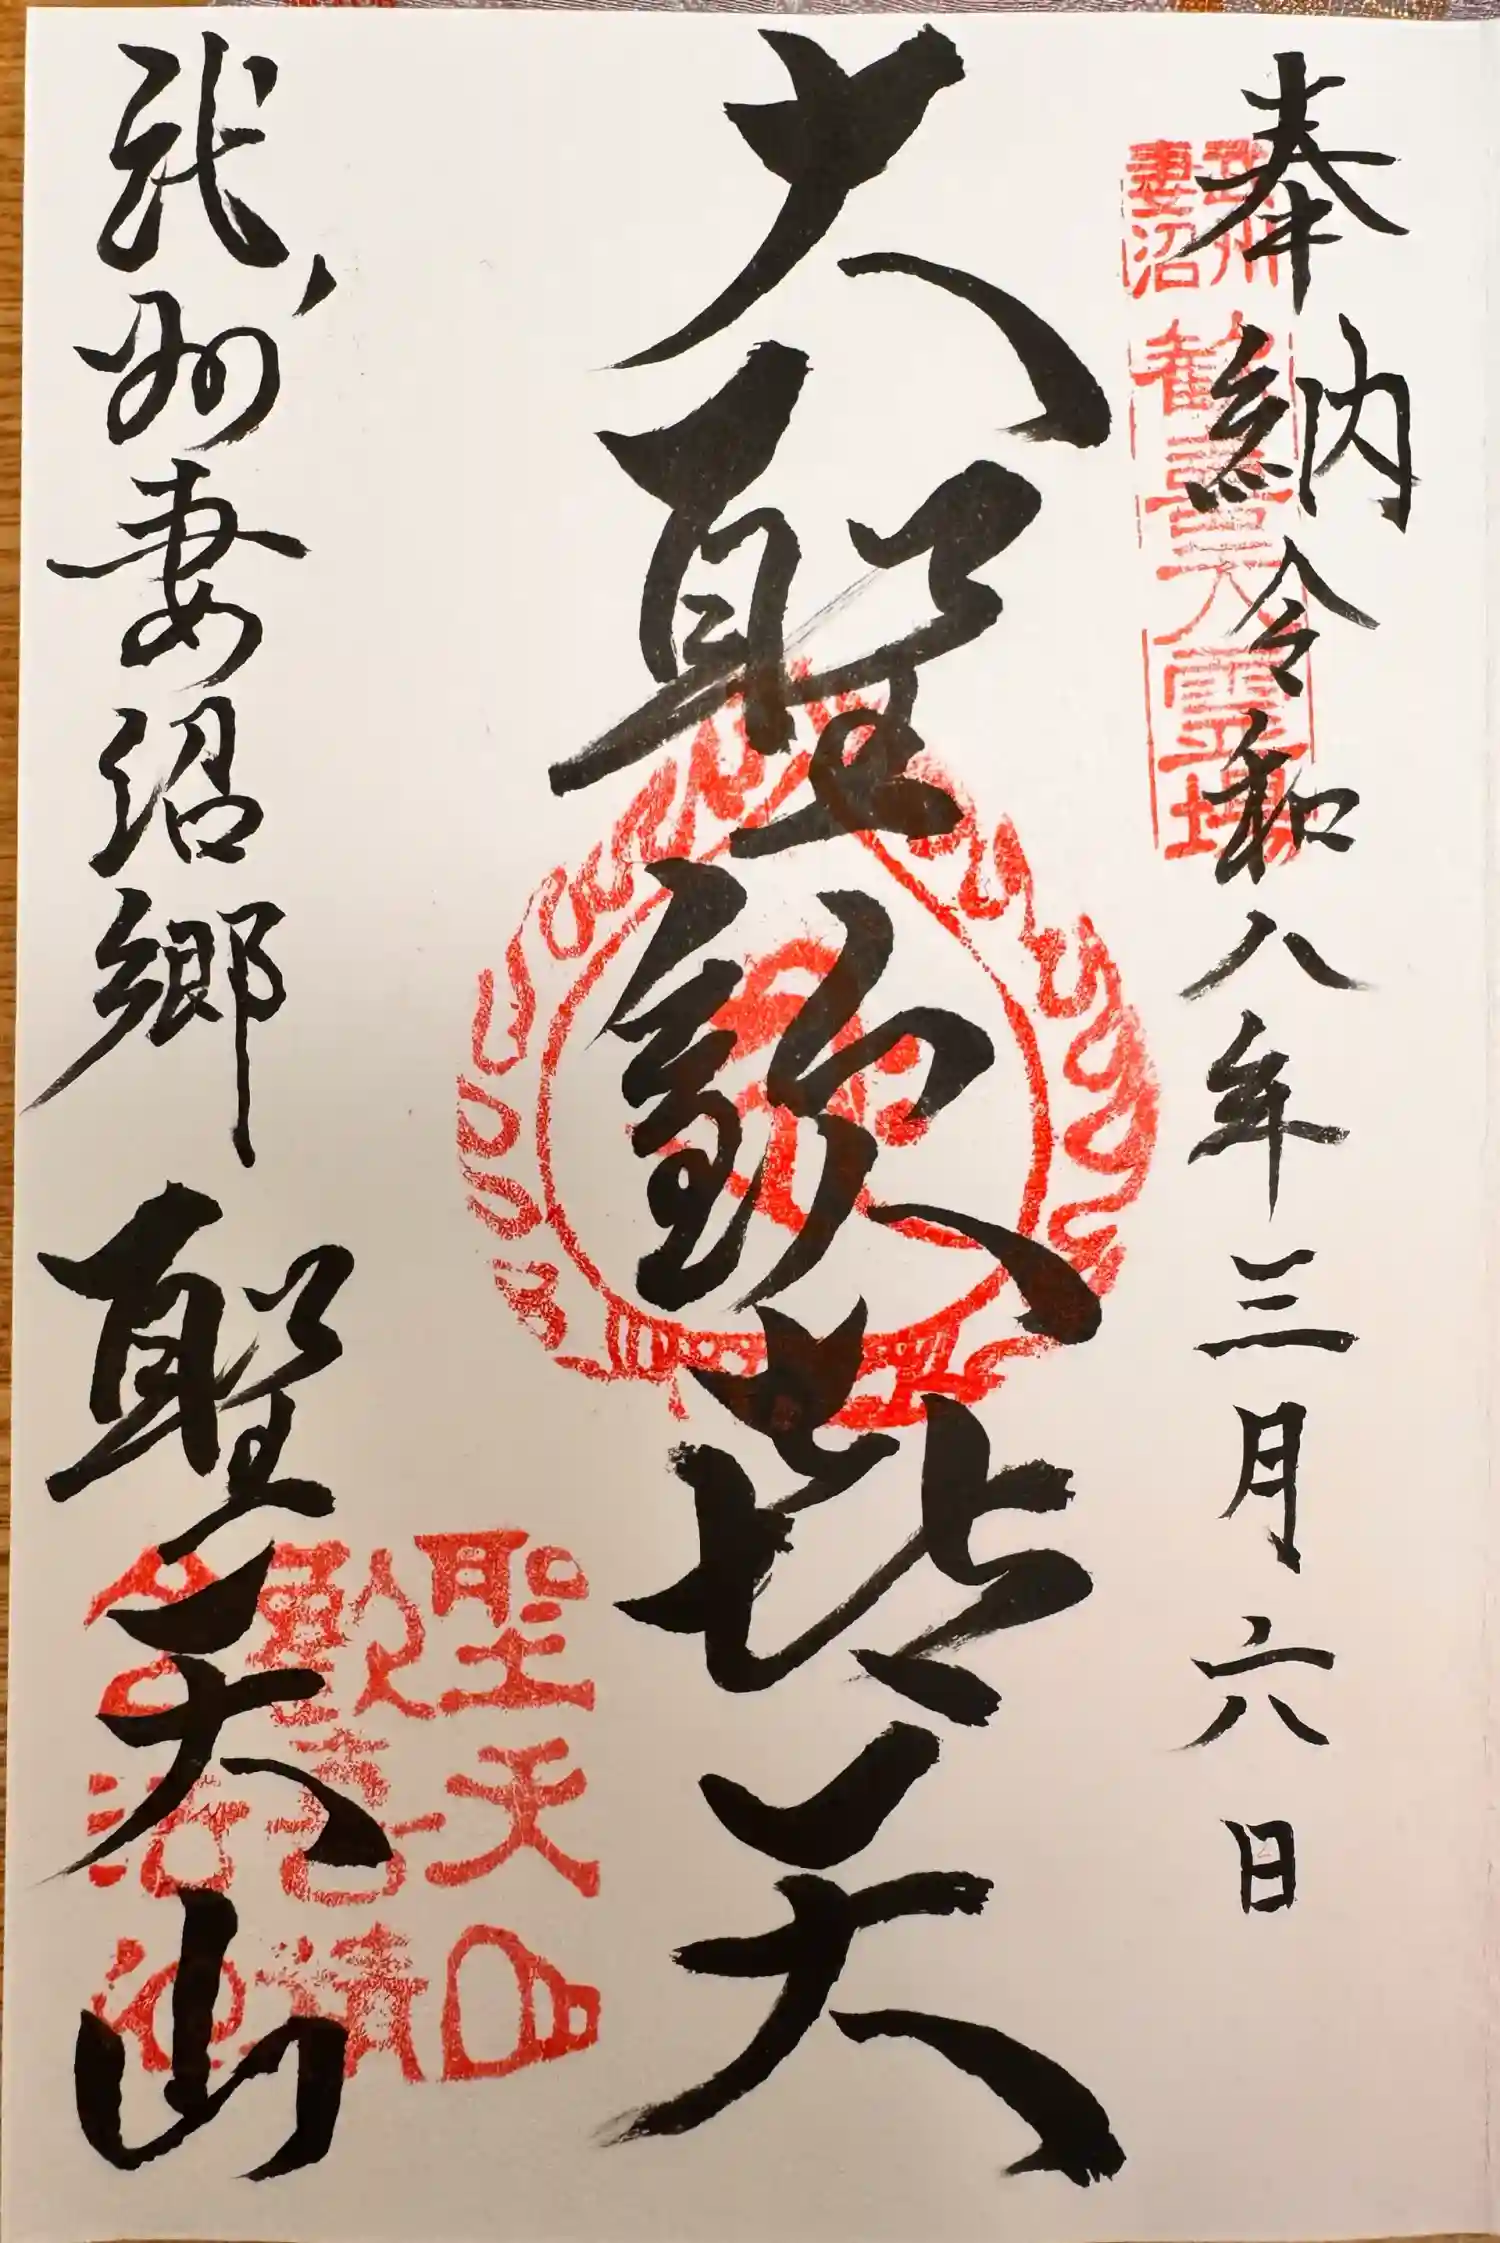 奉納 令和八年三月六日
武州妻沼 歓喜天霊場
大聖歓喜天
武州妻沼郷 聖天山
聖天山